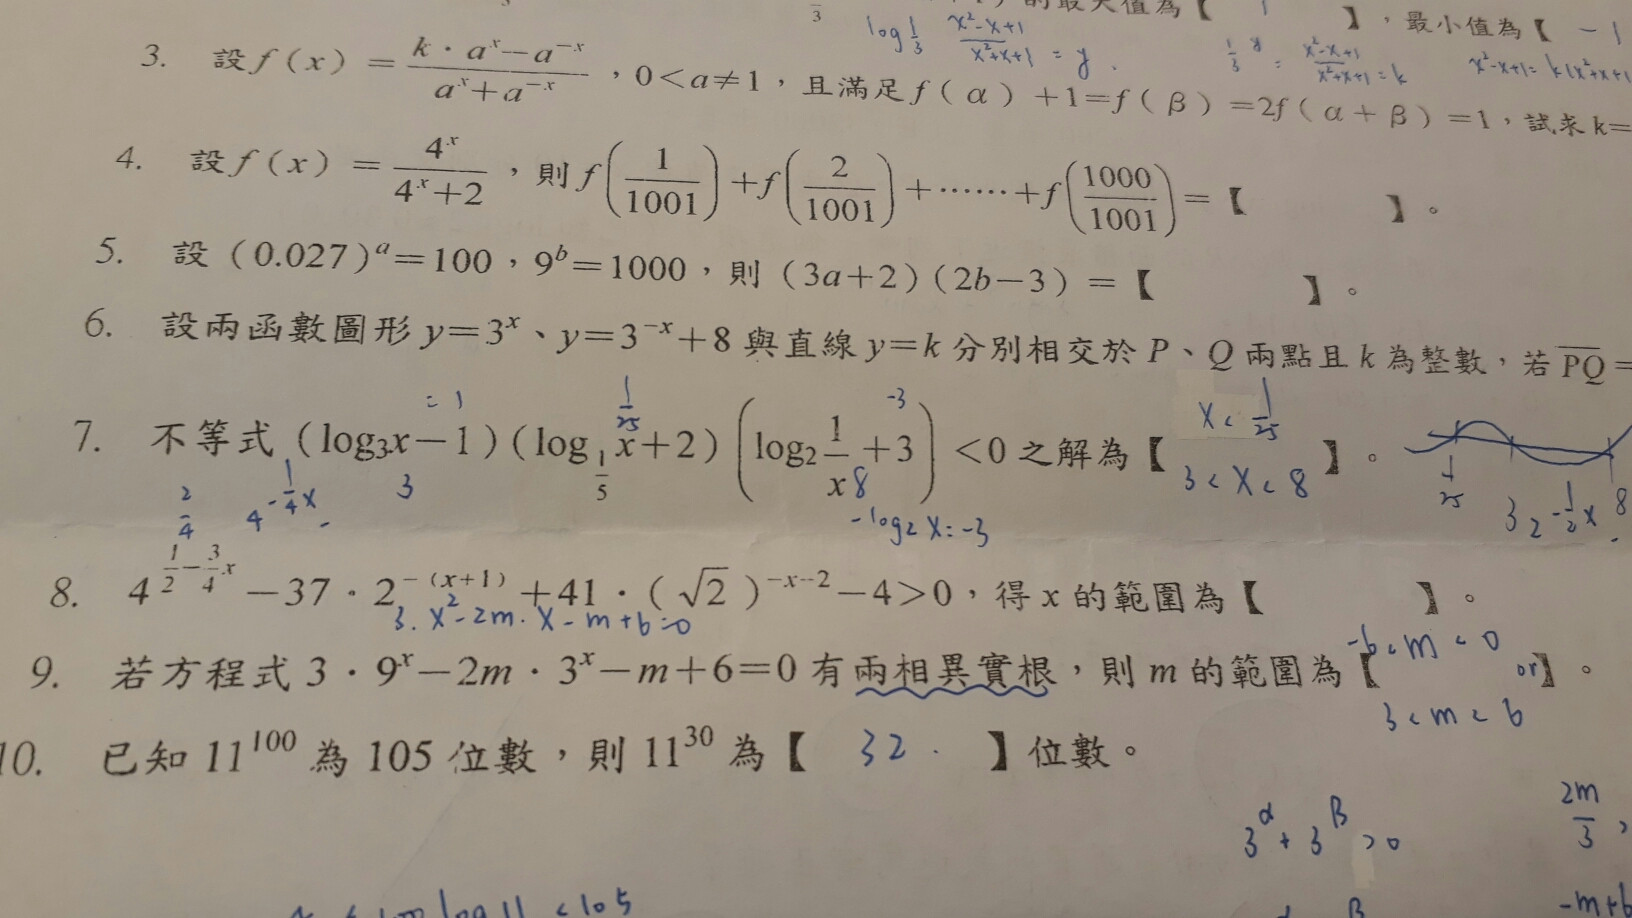 的最大值為【 1 】，最小值為【 -1
log 1/3 (x²-x+1)/(x²+x+1) = y
(x²-x+1)/(x²+x+1) = k
x²-x+1 = k(x²+x+1
3. 設 f(x) = (k·aˣ-a⁻ˣ)/(aˣ+a⁻ˣ)，0<a≠1，且滿足 f(α)+1=f(β)=2f(α+β)=1，試求 k=
4. 設 f(x) = 4ˣ/(4ˣ+2)，則 f(1/1001)+f(2/1001)+……+f(1000/1001)=【 】。
5. 設 (0.027)ᵃ=100，9ᵇ=1000，則 (3a+2)(2b-3)=【 】。
6. 設兩函數圖形 y=3ˣ、y=3⁻ˣ+8 與直線 y=k 分別相交於 P、Q 兩點且 k 為整數，若 P̅Q̅=
=1 1/25 -3
7. 不等式 (log₃x-1)(log_{1/5}x+2)(log₂ 1/x +3)<0 之解為【 x< 1/25 3<x<8 】。
3 8
-log₂x=-3
1/25 3 8
2/4 4^{-1/4 x} 2^{-1/2 x}
8. 4^{1/2-3/4 x}-37·2^{-(x+1)}+41·(√2)^{-x-2}-4>0，得 x 的範圍為【 】。
3·x²-2m·x-m+6=0
9. 若方程式 3·9ˣ-2m·3ˣ-m+6=0 有兩相異實根，則 m 的範圍為【 -6<m<0 or 3<m<6 】。
10. 已知 11¹⁰⁰ 為 105 位數，則 11³⁰ 為【 32 】位數。
3^α+3^β>0
2m/3
-m+6
log 11 <105